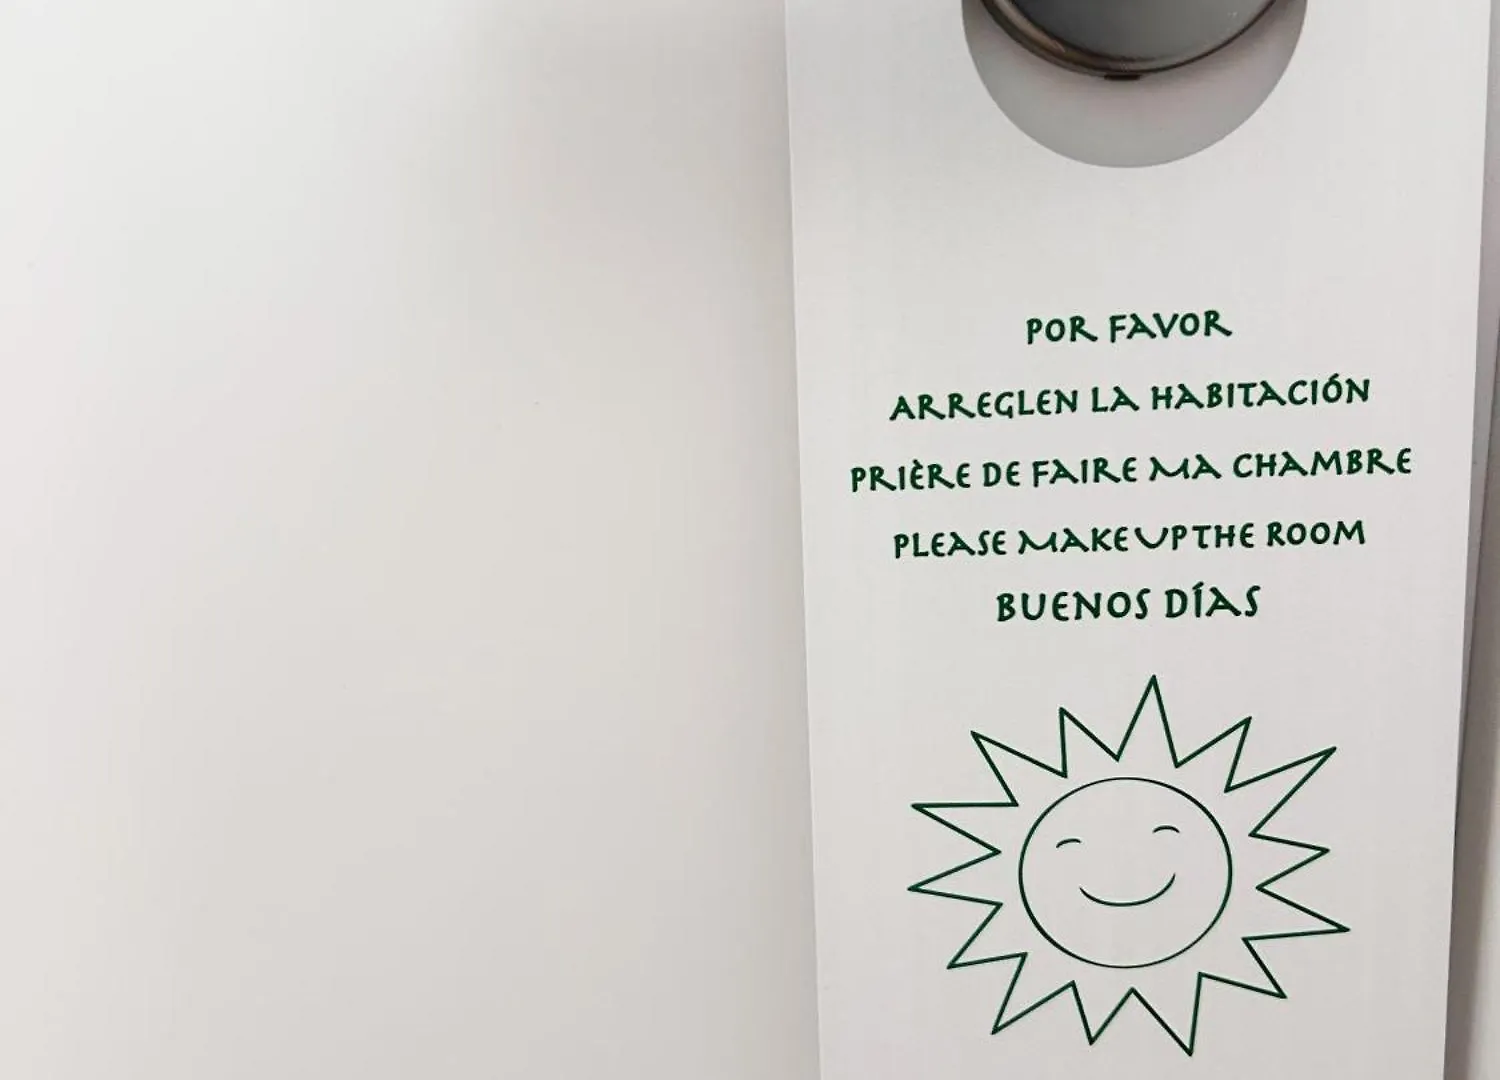 POR FAVOR
ARREGLEN LA HABITACIÓN
PRIÈRE DE FAIRE MA CHAMBRE
PLEASE MAKE UP THE ROOM
BUENOS DÍAS